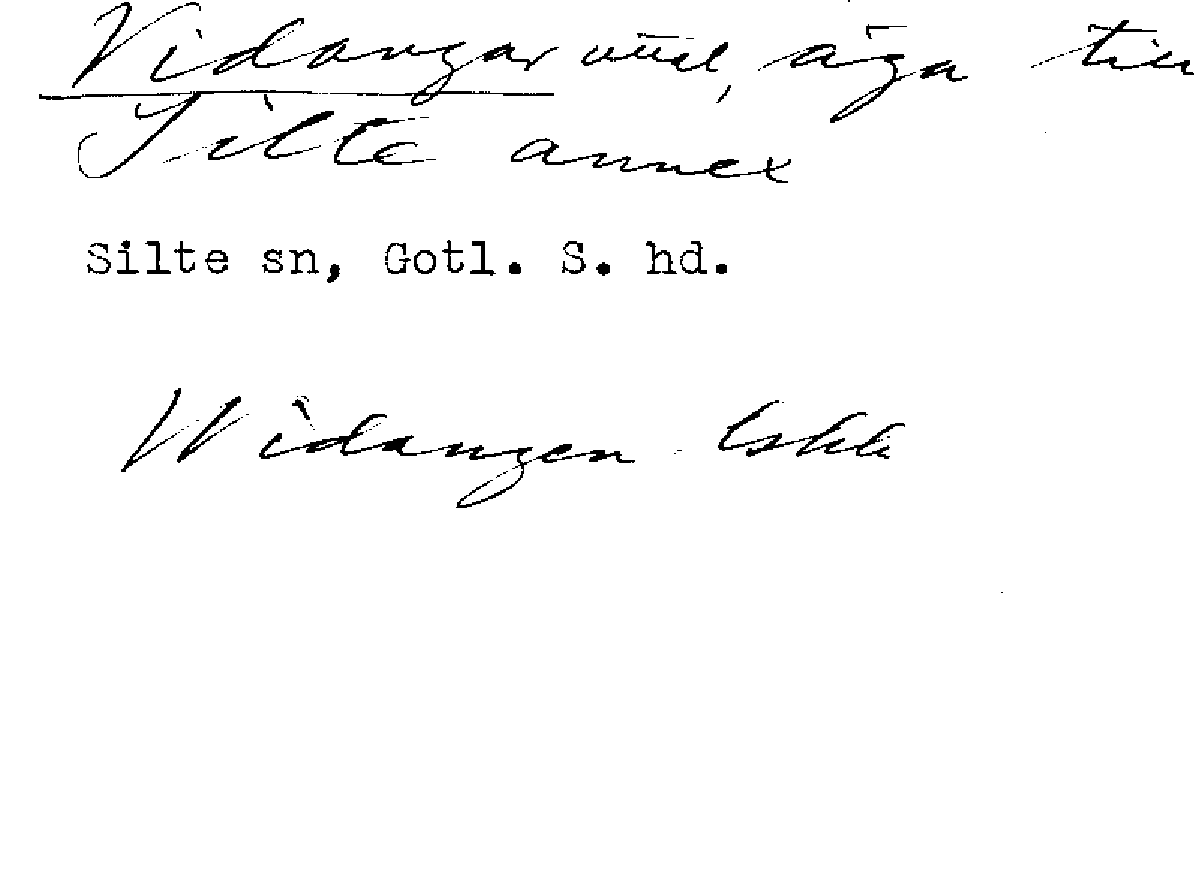 Vidangar utäl, äga till
Silte annex
Silte sn, Gotl. S. hd.
Widangen